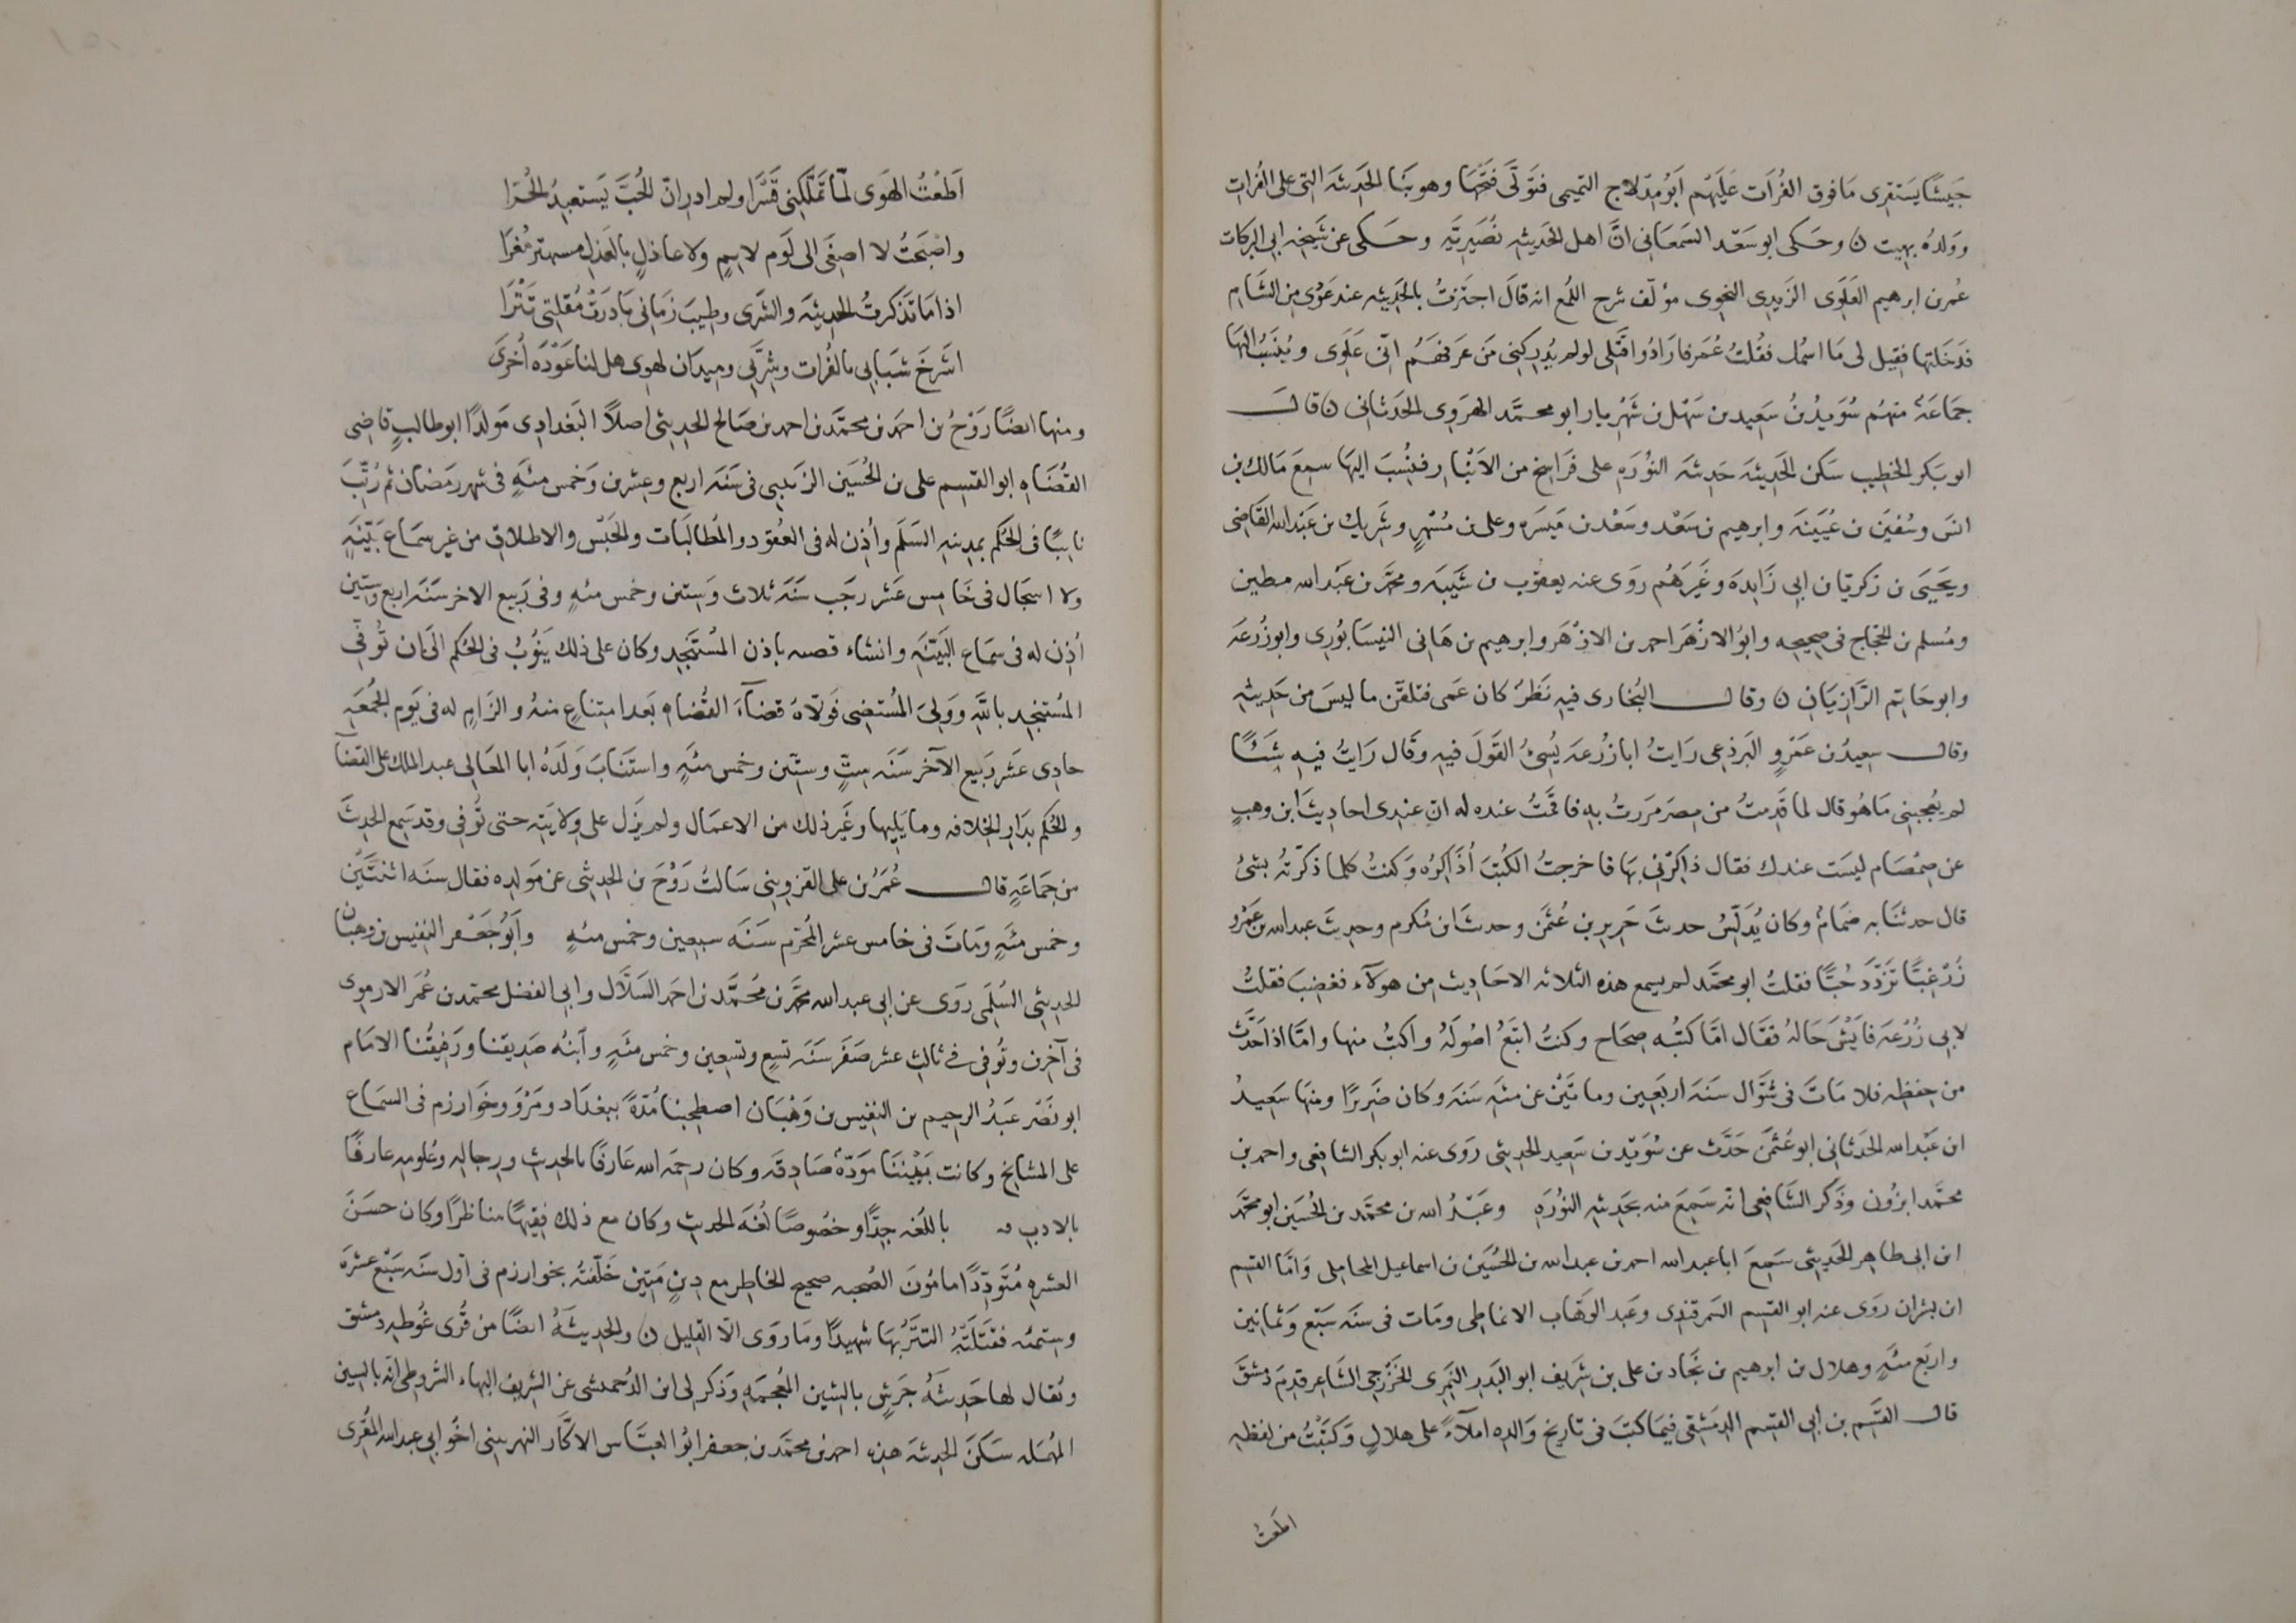 جَيشًا يَستقرى مَا فوق الفُرَات عَلَيهُم اَبُو مِدلاج التميمى فتوَلّى فَتحَها وهو بَنَا الحَديثَه التى على الفُرات
ووَلدُه بهيت ن وحَكى ابو سَعْد السَمعَانى انَّ اهل الحَديثه نُصَيريَّه وحَكى عن شَيخه ابى البركات
عُمر بن ابرهيم العَلَوى الزَيدى النحوى مؤلّف شرح اللُمع انه قالَ اجتَزتُ بالحَديثه عند عَوْدى مِن الشَام
فدَخَلتها فقِيل لى مَا اسمُك فقُلتُ عُمَر فارَادُوا قَتلى لو لم يُدركنى مَن عَرفهَم انّى عَلَوى ويُنسَبُ اليَها
جمَاعَة منهُم سُوَيدُ بنُ سَعِيد بن سَهْل بن شَهْريار ابو محمَّد الهرَوى الحَدَثانى ن قالـــ
ابو بَكر الخطِيب سَكن الحَديثَه حَديثَه النُورَه على فَرَاسِخ من الاَنْبَار فنُسِبَ اليَها سمِعَ مَالك بن
انسَ وسُفيَن بن عُيَينَه وابرهيم بن سَعْد وسَعْد بن مَيسَره وعلى بن مُسْهِر وشَريك بن عَبْد الله القَاضى
ويَحيَى بن زكريّا بن ابى زَايدَه وغَيرَهُم رَوَى عنه يعقوب بن شَيبَه ومحمَّد بن عَبْد الله مطين
ومُسلم بن الحجّاج فى صحِيحِه وابُو الازْهَر احمد بن الازْهَر وابرهيم بن هَانى النيسَابُورى وابو زُرعَه
وابو حَاتِم الرَّازيَانِ ن وقالـــ البُخارى فيه نَظرٌ كان عَمى فتلقَّن ما ليسَ من حَديثه
وقالـــ سعِيدُ بن عَمْرٍو البَرذعى رَايتُ ابا زُرعَه يُسِئُ القَولَ فيه وقَال رَايتُ فيه شَئًا
لم يُعجبنى مَا هُو قال لما قَدِمتُ من مِصرَ مَررتُ بِه فاقمَتُ عنده له ان عِندى احاديثَ ابن وهبٍ
عن ضِمْصَام ليسَت عندك فقال ذاكِرنى بهَا فاخرجتُ الكُتبَ اُذَاكِرُه وَكنتُ كلما ذكَّرتُه بشئ
قال حدثنَا به ضمَامُ وكان يُدَلّسُ حدثَ حَرير بن عُثمَن وحدثَ ابن مُكرم وحديثَ عبد الله بن عَمْرٍو
زُرْ غِبًّا تَزدَد حُبًّا فقلتُ ابو محمَّد لم يسمع هذه الثلاثه الاحَاديث من هولآء فغضِبَ فقلتُ
لابى زُرْعَه فايشَ حَالهُ فقَال امّا كتُبُه صِحَاح وكنتُ اتبَعُ اصُولَهُ واكتبُ منها وامَّا اذا حَدَّثَ
من حِفظه فلا مَاتَ فى شَوَّال سَنَه اربَعِين وماتَيْن عن مئَه سَنَه وكان ضَريرًا ومنهَا سَعِيدُ
ابن عَبْد الله الحَدَثانى ابو عُثمَن حَدَّث عن سُوَيْد بن سَعِيد الحديثى رَوَى عنه ابو بكر الشافِعى واحمد بن
محمَّد ابزُون وذَكر الشَافِعى انّه سَمِعَ منه بحَديثه النُورَه وعَبْدُ الله بن محمَّد بن الحُسَين ابو محمّد
ابن ابى طاهِر الحَديثى سَمِعَ ابا عبد الله احمد بن عبد الله بن الحُسَين بن اسماعيل المحَاملى وَامّا القسِم
ابن بشران رَوى عنه ابو القسِم السَمرقندى وعَبد الوَهّاب الانماطى ومَات فى سَنَه سَبْع وَثمانِين
واربَع مئَهٍ وهلال بن ابرهيم بن نجَاد بن على بن شَريف ابو البَدر النُمَرى الخَزرَجى الشَاعِر قدِمَ دمشقَ
قالـــ القَسِم بن ابى القسِم الدِمَشقى فيمَا كتَبَ فى تَاريخ وَالده املآءً على هلالٍ وَكتَبْتُ من لفظه
اطَعْتُ
اَطَعْتُ الهَوَى لمّا تَمَلّكنى قَسْرَا ولم ادر انّ الحُبَّ يَستعبِدُ الحُرّا
واصْبَحتُ لا اصِغَى الى لَوم لايمٍ ولا عاذلٍ بالعَذلِ مستهتر مُغرَا
اذا مَا تذَكرتُ الحديثَه والشَرَى وطِيبَ زمَانى بَادَرَتْ مُقلتِى تَتْرَا
اشَرخَ شبَابى بالفُرات وشِرَّتى وميدَان لهوى هل لنا عَوْدَه اُخرَى
ومنها ايضًا رَوْحُ بن احمَد بن محمَّد بن احمد بن صَالح الحديثى اصلاً البَغدادى مَولدًا ابو طالبٍ قاضِى
القُضَاه ابو القسِم على بن الحُسَين الزَينبى فى سَنَه اربع وعشرين وَخمس مئَهٍ فى شهر رمَضان ثم رُتّبَ
نايبًا فى الحُكم بمدِينه السَلَم واُذِن له فى العُقود والمُطالبَات والحَبْس والاطلاق من غير سمَاع بَيّنَهٍ
ولا اسجَال فى خَامِس عَشر رجَب سَنَه ثلاث وَستين وخمس مئهٍ وفى رَبيع الاخر سَنَه اربع وستين
اُذِن له فى سمَاع البَيّنَه وانشاء قصه باذن المُستَنجِد وكان على ذلك يَنُوبُ فى الحُكم الَى ان تُوفّى
المُستنجِد باللَّه وَوَلِى المُستضِى فَولاّهُ قضَآءَ القُضَاه بَعد امتناعٍ منهُ والزَامٍ له فى يَوم الجُمعَه
حادى عشر رَبيع الآخر سَنَه ستٍّ وستّين وخمس مئهٍ واستَنَابَ وَلدَهُ ابا المعَالى عبد الملك على القضآ
والحُكم بدَار الخلافه وما يَليها وغَير ذلك من الاعمَال ولم يزَل على وِلايَتِه حتى تُوفى وقد سَمِع الحديثَ
من جمَاعَهٍ قالـــ عُمَرُ بن على القزوينى سَالتُ رَوْحَ بن الحديثى عن مَولده فقال سنَه اثنتَين
وخمس مئَهٍ ومَاتَ فى خامس عشر المُحَرَّم سَنَه سبعين وخمس مئهٍ وَاَبُو جَعْفر النفِيس بن وهبَان
الحديثى السُلَمى روَى عن ابى عبد الله محمَّد بن مُحَمَّد بن احمَد السَلاّل وابى الفضل محمّد بن عُمَر الارموى
فى آخرين وتُوفى فى ثالث عشر صَفَر سَنَه تسِعٍ وتسعين وخمس مئَهٍ وابنُه صَديقنا ورَفيقُنا الامَام
ابو نَصْر عَبدُ الرحِيم بن النفِيس بن وَهْبَان اصطحَبنا مُدّةً ببغدَاد ومَرْوَ وخوَارزم فى السَمَاع
على المشايخ وكانت بَيْننَا مَوَدّه صَادِقه وكان رحِمَه الله عَارفًا بالحديث ورِجاله وعُلومِه عارفًا
بالادبِ باللُغه جدًّا وخصُوصًا لُغَه الحديث وكان مع ذلك فقِيهًا مناظرًا وكان حسَنَ
العشره مُتَودّدًا مامُونَ الصُحبه صحيح الخاطِر مع دينٍ مَتِين خَلّفتُه بخوارزم فى اول سَنَه سَبْع عشرَه
وستمئه فقَتلَتهُ التتَرُ بهَا شهيدًا ومَا روَى الاّ القليل ن والحديثَهُ ايضًا من قُرَى غُوطه دمشق
ويُقال لها حَديثَهُ جَرشٍ بالشين المُعجمَه وَذكر لى ابن الدُخميسى عن الشريف البهاء الشروطى انّه بالسِين
المُهمَله سَكنَ الحديثَه هذه احمد بن محمَّد بن جعفر ابُو العبَّاس الاكّار النهربينى اخُو ابى عبد الله المُقرى